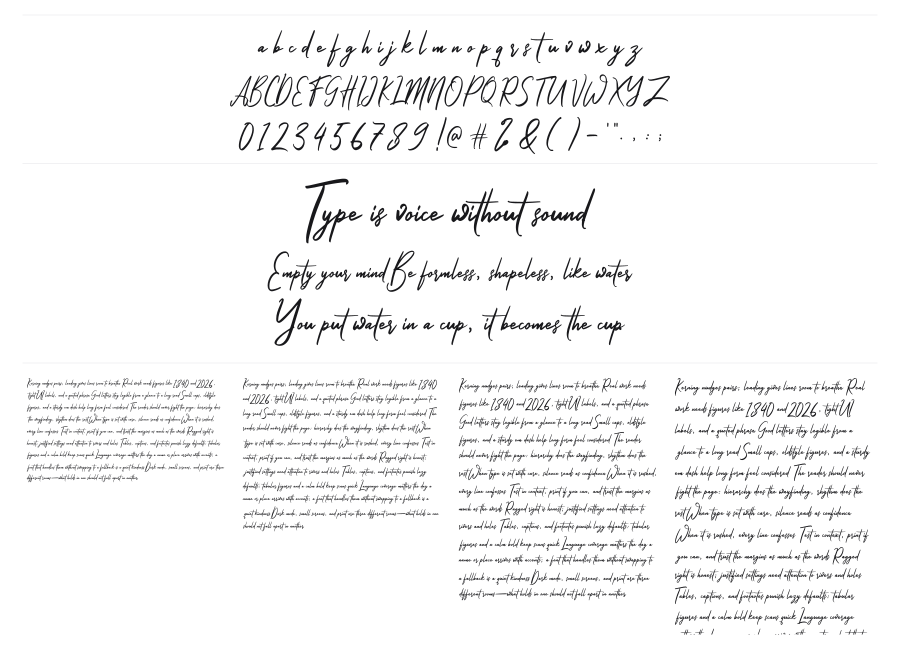 a b c d e f g h i j k l m n o p q r s t u v w x y z
ABCDEFGHIJKLMNOPQRSTUVWXYZ
0123456789!@#$&()-'".,:;
Type is voice without sound
Empty your mind Be formless, shapeless, like water
You put water in a cup, it becomes the cup
Kerning nudges pairs; leading gives lines room to breathe Real work needs figures like 1840 and 2026 ·
tight UI labels, and a quoted phrase Good letters stay legible from a glance to a long read Small caps, oldstyle
figures, and a sturdy em dash help long form feel considered The reader should never fight the page: hierarchy does
the wayfinding, rhythm does the rest When type is set with care, silence reads as confidence When it is rushed,
every line confesses Test in context, print if you can, and trust the margins as much as the words Ragged right is
honest; justified settings need attention to rivers and holes Tables, captions, and footnotes punish lazy defaults: tabular
figures and a calm bold keep scans quick Language coverage matters the day a name or place arrives with accents; a
font that handles them without swapping to a fallback is a quiet kindness Dark mode, small screens, and print are three
different rooms—what holds in one should not fall apart in another
Kerning nudges pairs; leading gives lines room to breathe Real work needs figures like 1840
and 2026 · tight UI labels, and a quoted phrase Good letters stay legible from a glance to a
long read Small caps, oldstyle figures, and a sturdy em dash help long form feel considered The
reader should never fight the page: hierarchy does the wayfinding, rhythm does the rest When
type is set with care, silence reads as confidence When it is rushed, every line confesses Test in
context, print if you can, and trust the margins as much as the words Ragged right is honest;
justified settings need attention to rivers and holes Tables, captions, and footnotes punish lazy
defaults: tabular figures and a calm bold keep scans quick Language coverage matters the day a
name or place arrives with accents; a font that handles them without swapping to a fallback is a
quiet kindness Dark mode, small screens, and print are three different rooms—what holds in one
should not fall apart in another
Kerning nudges pairs; leading gives lines room to breathe Real work needs
figures like 1840 and 2026 · tight UI labels, and a quoted phrase
Good letters stay legible from a glance to a long read Small caps, oldstyle
figures, and a sturdy em dash help long form feel considered The reader
should never fight the page: hierarchy does the wayfinding, rhythm does the
rest When type is set with care, silence reads as confidence When it is rushed,
every line confesses Test in context, print if you can, and trust the margins as
much as the words Ragged right is honest; justified settings need attention to
rivers and holes Tables, captions, and footnotes punish lazy defaults: tabular
figures and a calm bold keep scans quick Language coverage matters the day a
name or place arrives with accents; a font that handles them without swapping to
a fallback is a quiet kindness Dark mode, small screens, and print are three
different rooms—what holds in one should not fall apart in another
Kerning nudges pairs; leading gives lines room to breathe Real
work needs figures like 1840 and 2026 · tight UI
labels, and a quoted phrase Good letters stay legible from a
glance to a long read Small caps, oldstyle figures, and a sturdy
em dash help long form feel considered The reader should never
fight the page: hierarchy does the wayfinding, rhythm does the
rest When type is set with care, silence reads as confidence
When it is rushed, every line confesses Test in context, print if
you can, and trust the margins as much as the words Ragged
right is honest; justified settings need attention to rivers and holes
Tables, captions, and footnotes punish lazy defaults: tabular
figures and a calm bold keep scans quick Language coverage